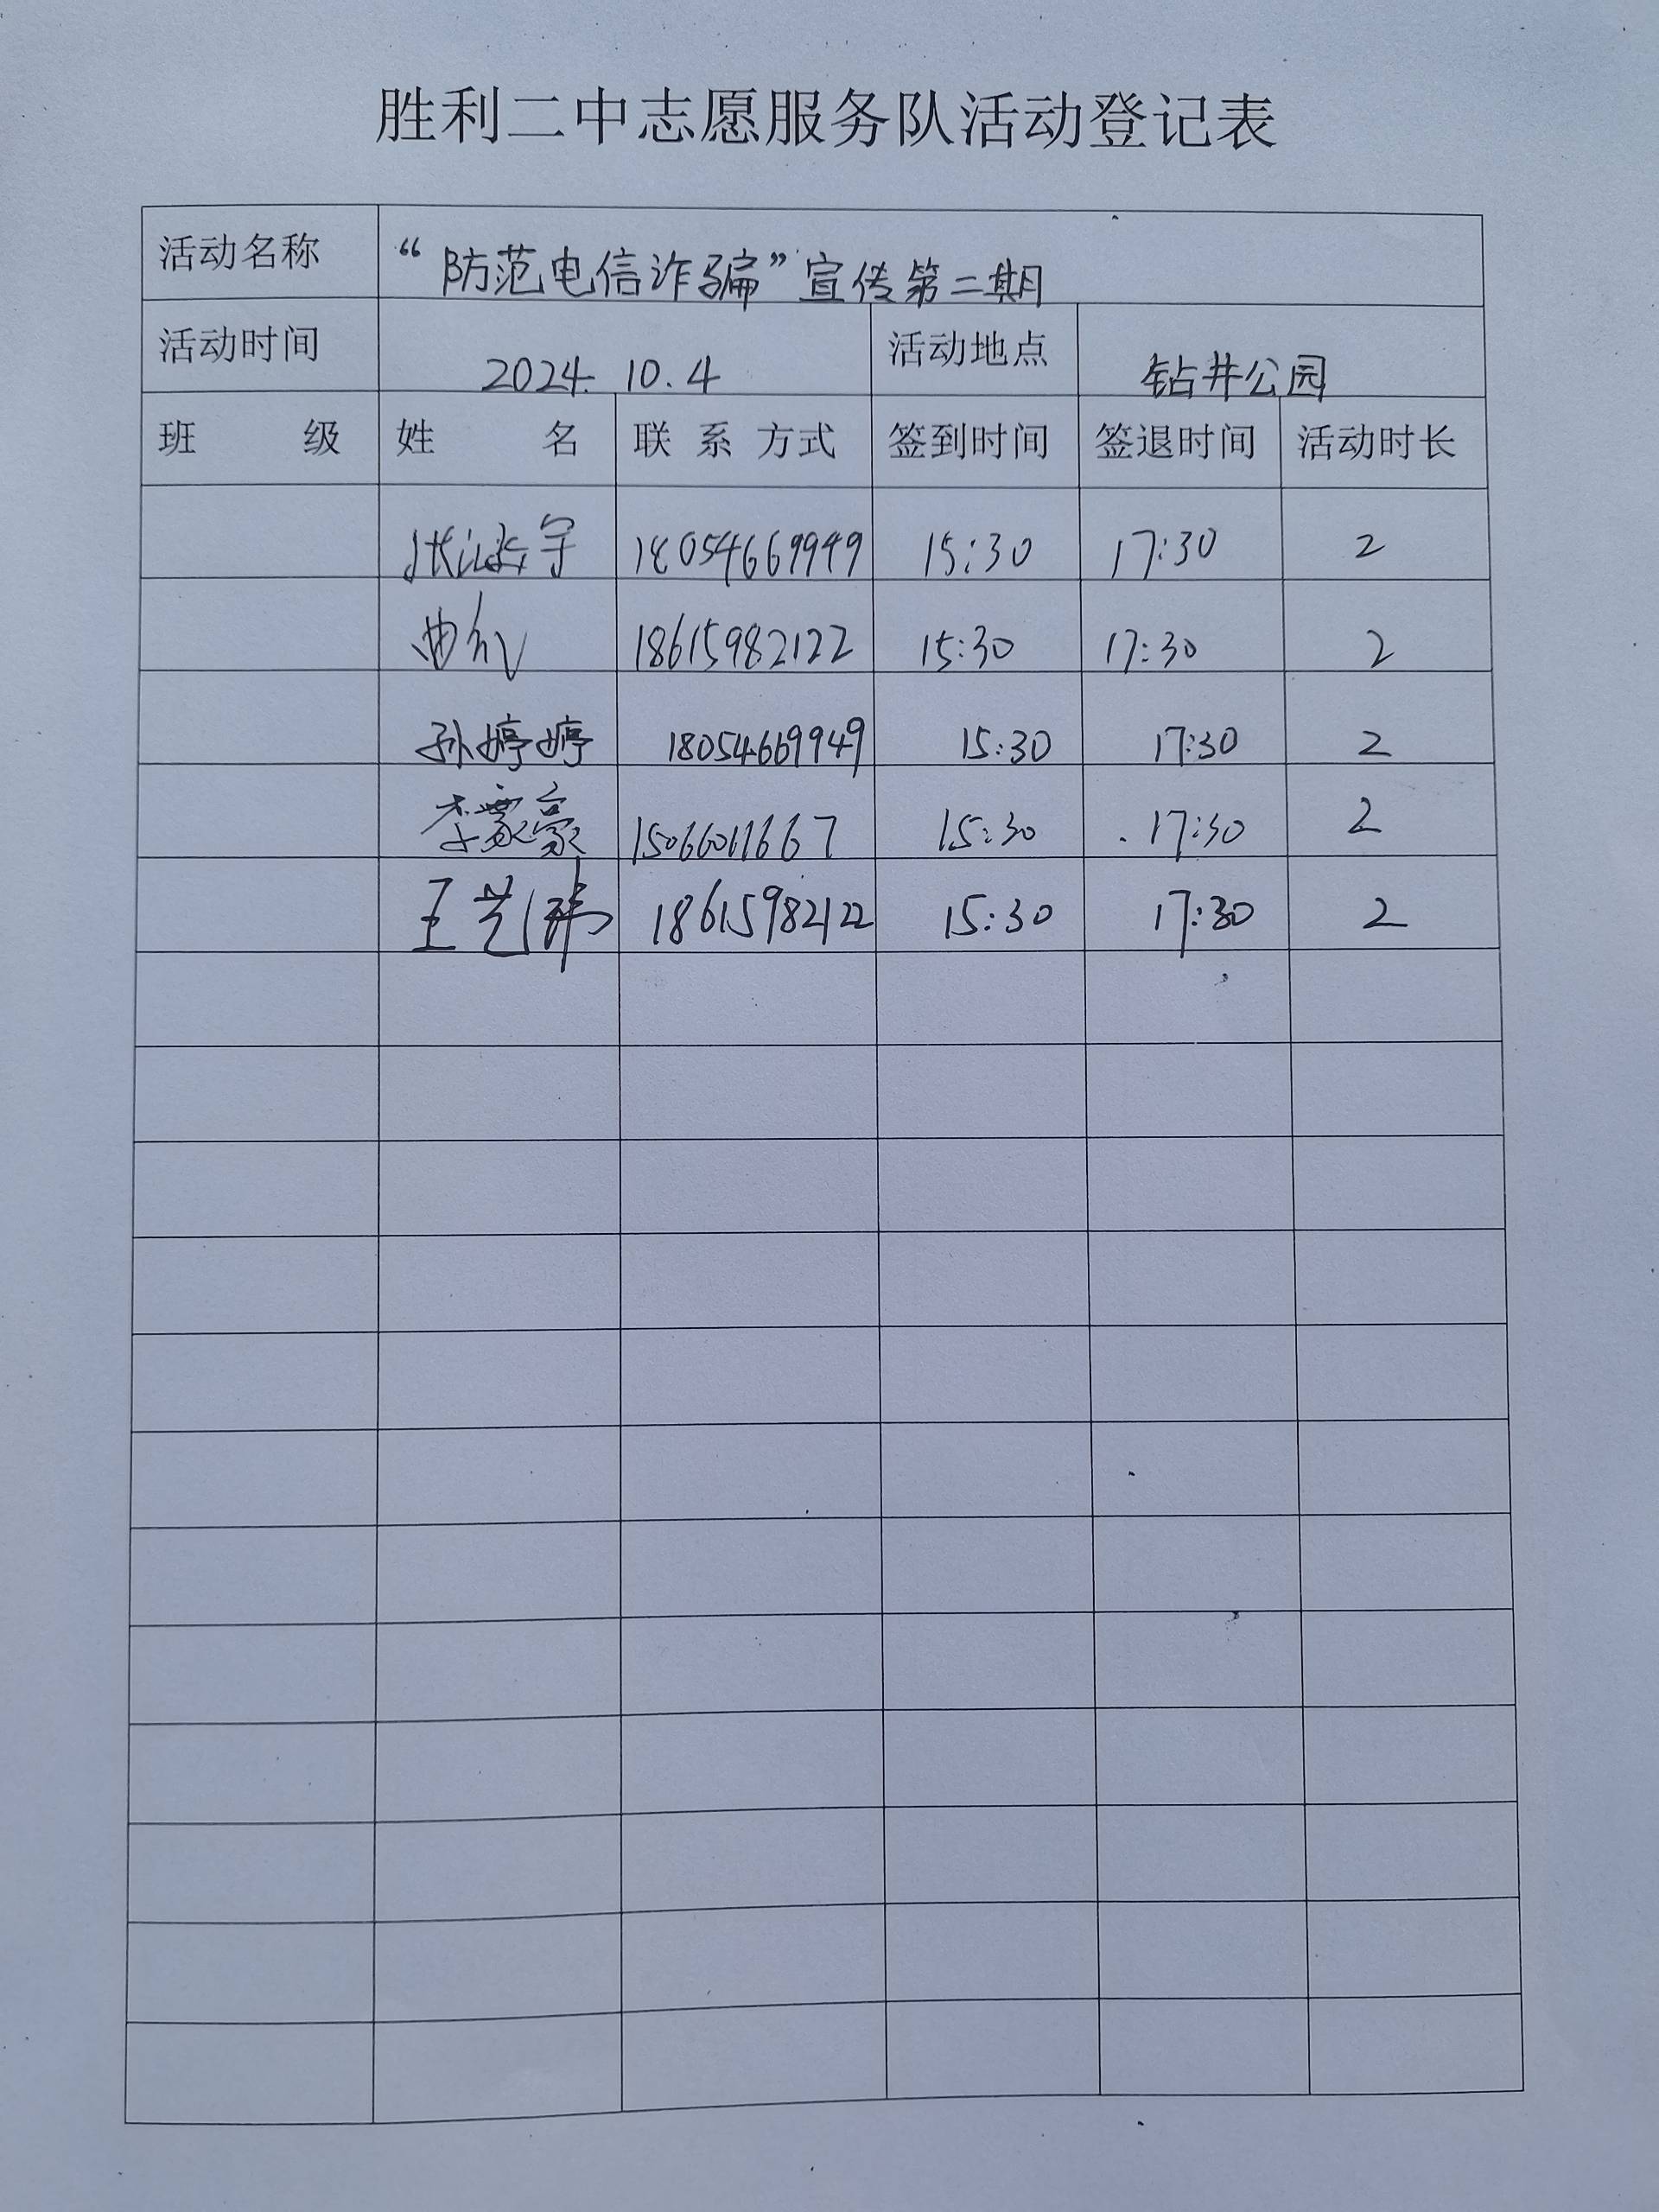 胜利二中志愿服务队活动登记表
活动名称 “防范电信诈骗”宣传第二期
活动时间 2024.10.4 活动地点 钻井公园
班 级 姓 名 联系方式 签到时间 签退时间 活动时长
18054669949 15:30 17:30 2
曲 18615982122 15:30 17:30 2
孙婷婷 18054669949 15:30 17:30 2
李豪 15066011667 15:30 17:30 2
王艺 18615982122 15:30 17:30 2